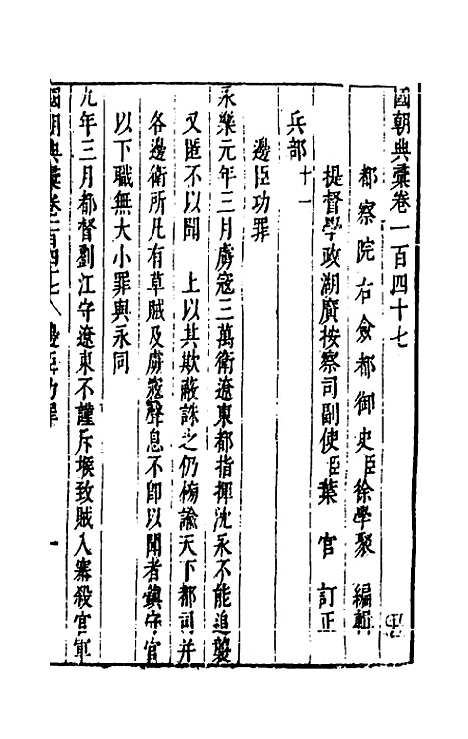 國朝典彙卷一百四十七
都察院右僉都御史臣徐學聚 編輯
提督學政湖廣按察司副使臣葉 官 訂正
兵部十一
邊臣功罪
永樂元年三月虜寇三萬衛遼東都指揮沈永不能追襲
又匿不以聞 上以其欺蔽誅之仍榜諭天下都司并
各邊衛所凡有草賊及虜寇聲息不卽以聞者鎮守官
以下職無大小罪與永同
九年三月都督劉江守遼東不謹斥堠致賊入寨殺官軍
國朝典彙卷一百四十七 邊臣功罪 一